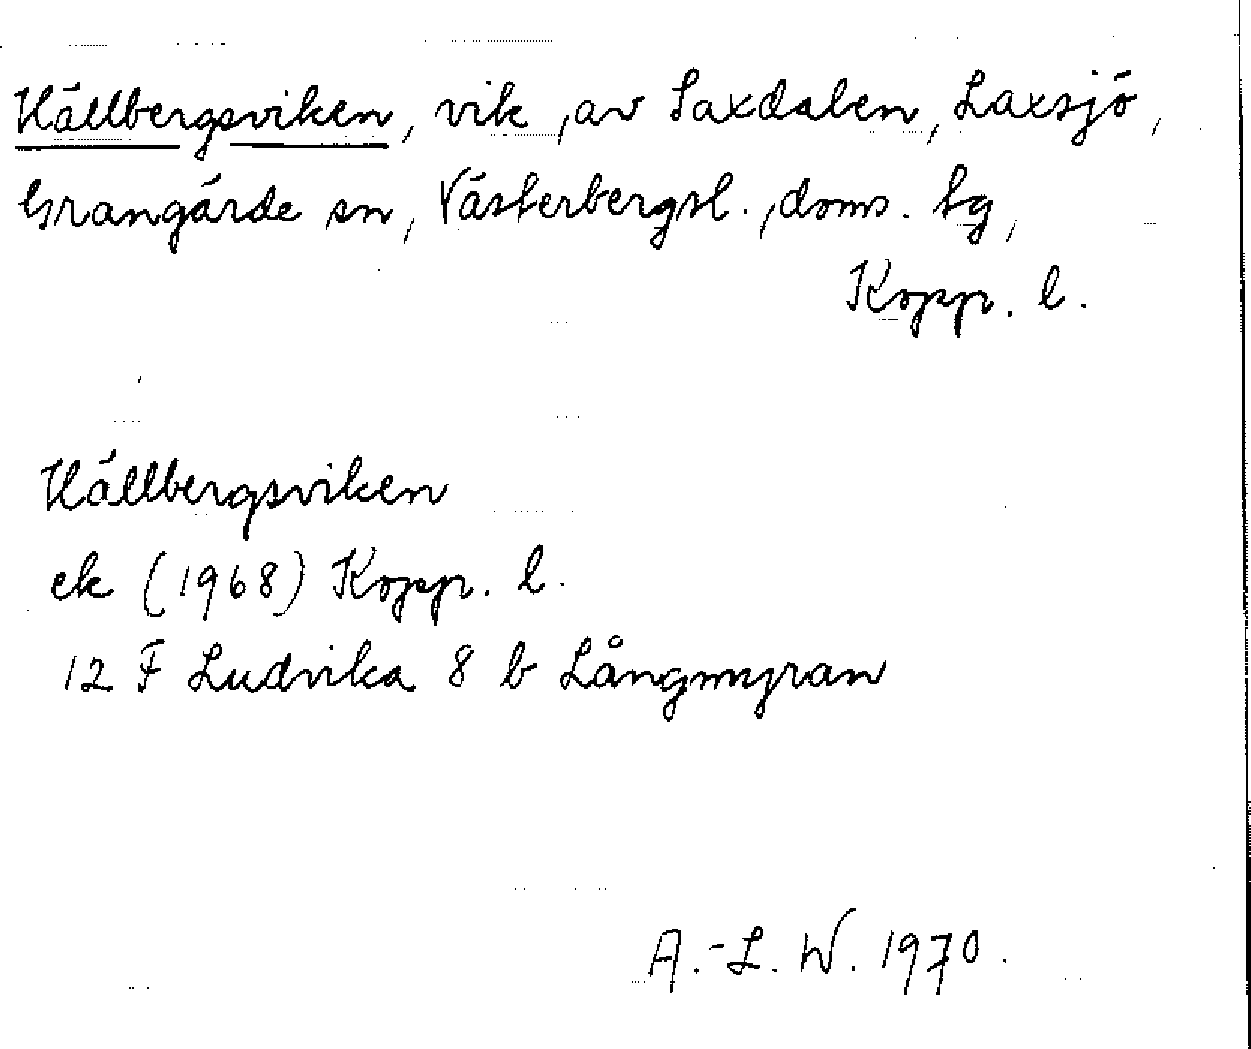 Hällbergsviken, vik, av Saxdalen, Laxsjö,
Grangärde sn, Västerbergsl., doms. tg,
Kopp. l.
Hällbergsviken
ek (1968) Kopp. l.
12 F Ludvika 8 b Långmyran
A.-L. W. 1970.